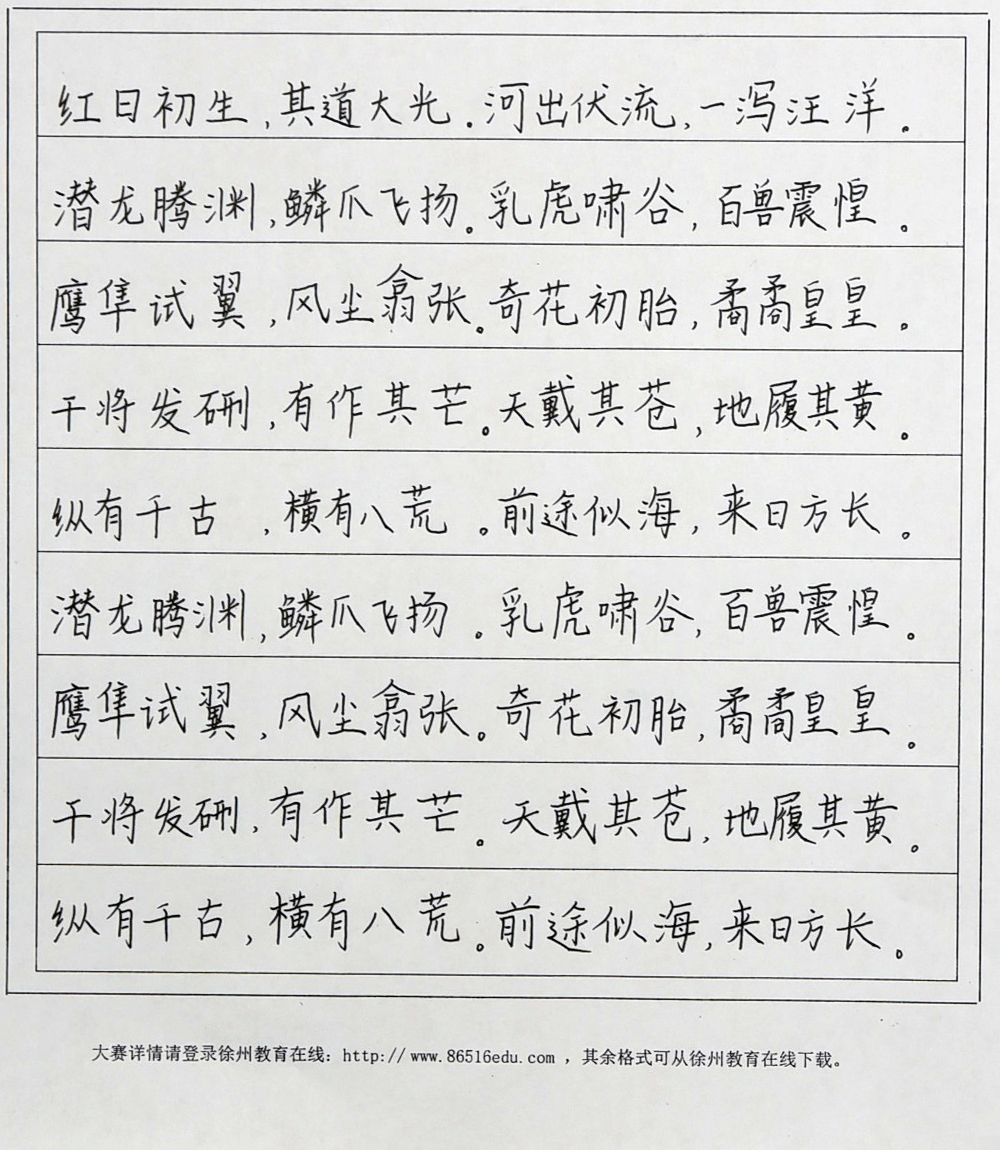 红日初生,其道大光。河出伏流,一泻汪洋。
潜龙腾渊,鳞爪飞扬。乳虎啸谷,百兽震惶。
鹰隼试翼,风尘翕张。奇花初胎,矞矞皇皇。
干将发硎,有作其芒。天戴其苍,地履其黄。
纵有千古,横有八荒。前途似海,来日方长。
潜龙腾渊,鳞爪飞扬。乳虎啸谷,百兽震惶。
鹰隼试翼,风尘翕张。奇花初胎,矞矞皇皇。
干将发硎,有作其芒。天戴其苍,地履其黄。
纵有千古,横有八荒。前途似海,来日方长。
大赛详情请登录徐州教育在线:http://www.86516edu.com ,其余格式可从徐州教育在线下载。